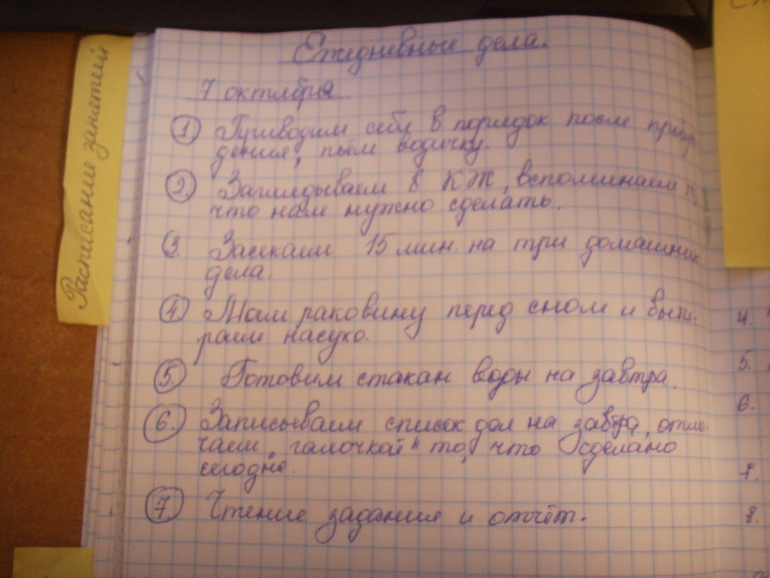 Ежедневные дела.
7 октября
Расписание занятий
1 Приводим себя в порядок после пробуж
дения, пьём водичку.
2 Заглядываем в КЖ, вспоминаем
что нам нужно сделать.
3. Засекаем 15 мин. на три домашних
дела.
4 Моем раковину перед сном и выти-
раем насухо.
5. Готовим стакан воды на завтра.
6. Записываем список дел на завтра, отме-
чаем „галочкой" то, что сделано
сегодня.
7. Чтение задания и отчёт.
4.
5.
6.
7.
8.